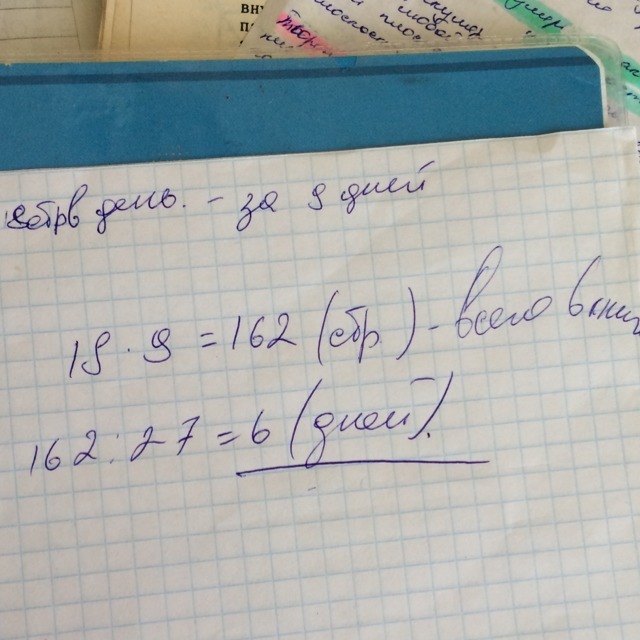 вн
п
18стр в день. - за 9 дней
18 · 9 = 162 (стр.) - всего в книг
162 : 27 = 6 (дней).